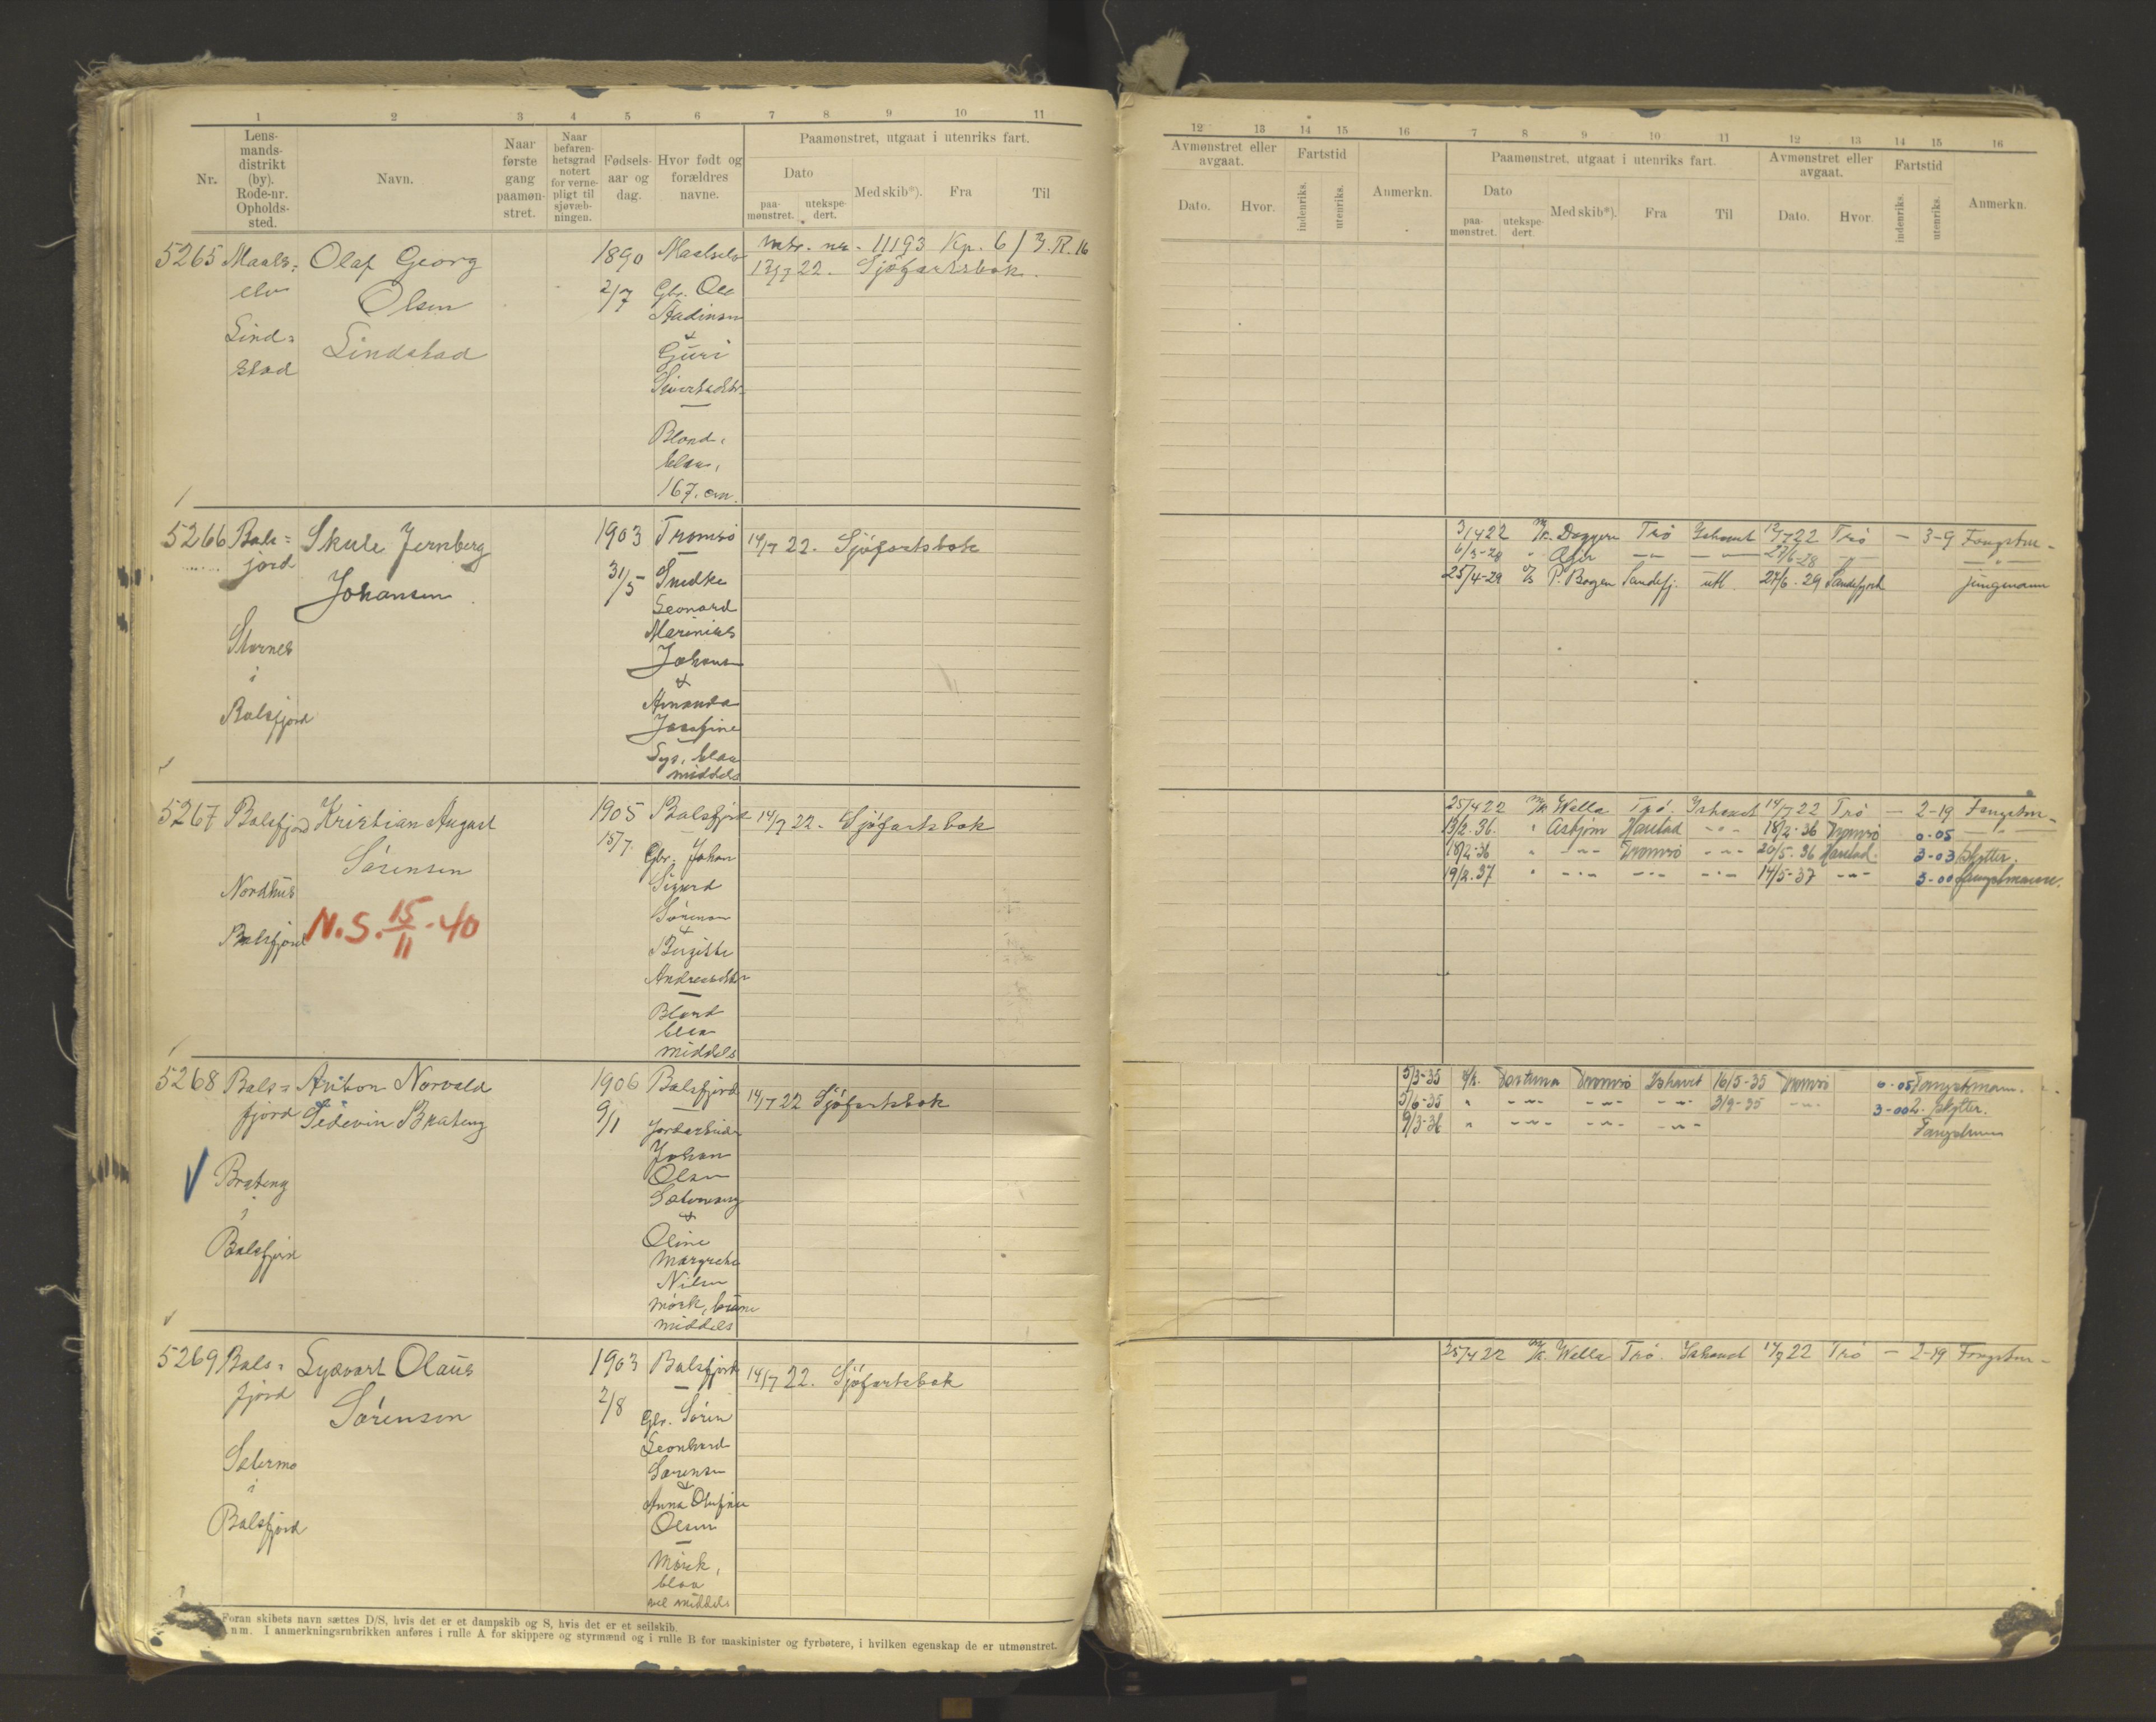 1 2 3 4 5 6 7 8 9 10 11
Nr.
Lens-
mands-
distrikt
(by).
Rode-nr.
Opholds-
sted.
Navn.
Naar
første
gang
paamøn-
stret.
Naar
befaren-
hetsgrad
notert
for verne-
pligt til
sjøvæb-
ningen.
Fødsels-
aar og
dag.
Hvor født og
forældres
navne.
Paamønstret, utgaat i utenriks fart.
Dato
paa-
mønstret.
utekspe-
dert.
Med skib*).
Fra
Til
5265 Maals=
elv
Lind=
stad
Olaf Georg
Olsen
Lindstad
1890
2/7
Maalselv
Gbr. Ole
Guri
Blond,
blaa,
167. cm.
mtr. nr. 11193 Kp. 6/3.R.16
13/7 22. Sjøfartsbok.
5266 Bals=
fjord
Stornes
i
Balsfjord
Skule Jernberg
Johansen
1903
31/5
Tromsø
Snedke
Leonard
Marinius
Johans
&
Amanda
Josefine
Lys, blaa
middels
14/7 22. Sjøfartsbok
5267 Balsfjord
Nordhus
Balsfjord
Kristian August
Sørensen
N.S. 15/11-40
1905
15/7
Balsfjord
Gbr. Johan
Sigurd
Sørensen
&
Birgitte
Andreasdtr
Blond
blaa
middels
14/7 22. Sjøfartsbok
5268 Bals=
fjord
Brateng
i
Balsfjord
Anton Norvald
Gedevin Brateng
1906
9/1
Balsfjord
Johan
Olsen
&
Oline
Margrete
Nilsen
mørk, brune
middels
14/7 22 Sjøfartsbok
5269 Bals=
fjord
Selermo
i
Balsfjord
Sydvart Olaus
Sørensen
1903
2/8
Balsfjord
Gbr. Søren
Leonhard
Sørensen
&
Anna Olufine
Olsen
Mørk,
blaa
vel middels
14/7 22. Sjøfartsbok
Foran skibets navn sættes D/S, hvis det er et dampskib og S, hvis det er et seilskib.
nm. I anmerkningsrubrikken anføres i rulle A for skippere og styrmænd og i rulle B for maskinister og fyrbøtere, i hvilken egenskap de er utmønstret.
12 13 14 15 16 7 8 9 10 11 12 13 14 15 16
Avmønstret eller
avgaat.
Dato.
Hvor.
Fartstid
indenriks.
utenriks.
Anmerkn.
Paamønstret, utgaat i utenriks fart.
Dato
paa-
mønstret.
utekspe-
dert.
Med skib*).
Fra
Til
Avmønstret eller
avgaat.
Dato.
Hvor.
Fartstid
indenriks.
utenriks.
Anmerkn.
3/4 22 M/K. Doggeren Trø Ishavet 12/7 22 Trø — 3-9 Fangstm -
6/3-28 " Ægir — " — — " — 27/6-28 — " — — " —
25/4-29 P. Bogen Sandefj. utl. 27/6-29 Sandefjord jungmann
25/4 22 M/K Wella Trø. Ishavet 14/7 22 Trø — 2-19 Fangstm -
13/2-36. " Asbjørn Harstad -"- 18/2-36 Tromsø 0-05 — " —
18/2-36 " -"- Tromsø -"- 20/5-36 Harstad. 3-03 skytter.
19/2-37 " -"- -"- -"- 14/5-37 -"- 3-00 fangstmann.
5/3-35 M/k. Fortuna Tromsø Ishavet 16/5-35 Tromsø 0-05 Fangstmann.
5/6-35 " -"- -"- -"- 3/9-35 -"- 3-00 2. skytter.
9/3-36 " -"- -"- -"- Fangstmann
25/4 22 M/K. Wella Trø. Ishavet 14/7 22 Trø — 2-19 Fangstm -